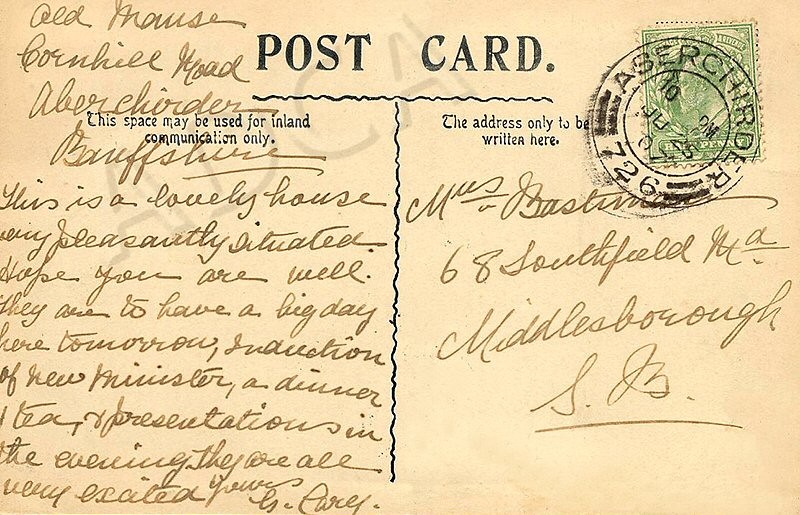 Old Manse
Cornhill Road
Aberchirder
Banffshire
POST CARD.
This space may be used for inland
communication only.
The address only to be
written here.
This is a lovely house
very pleasantly situated.
Hope you are well.
They are to have a big day
here tomorrow, Induction
of New Minister, a dinner
tea, & presentations in
the evening they are all
very excited Yours
G. Carey.
Mrs Bastin
68 Southfield Rd
Middlesborough
S. B.
ABERCHIRDER
PM
JU
726